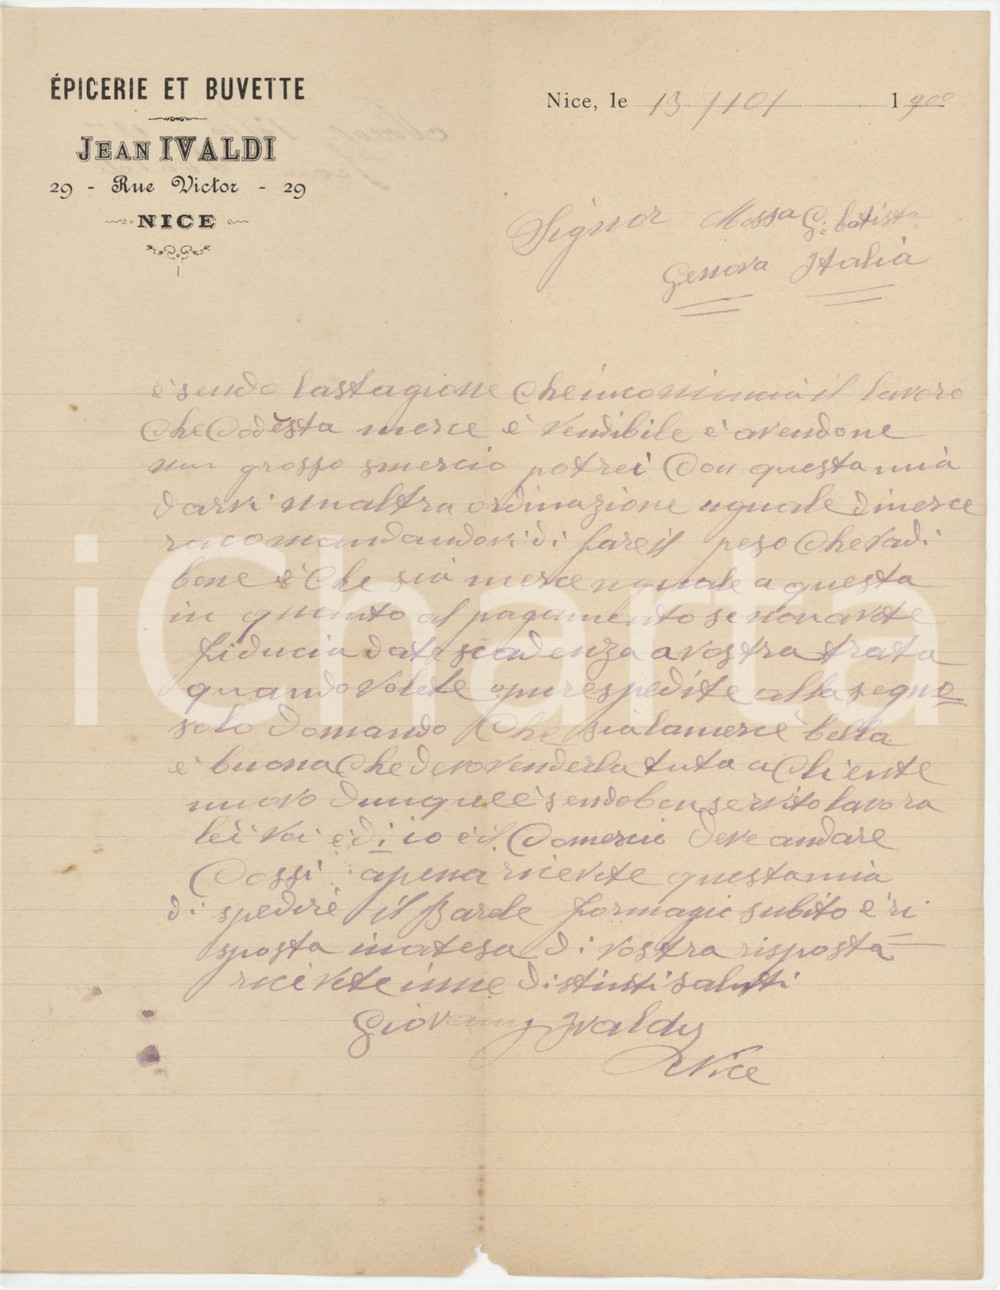 ÉPICERIE ET BUVETTE
JEAN IVALDI
29 - Rue Victor - 29
NICE
Nice, le 13/10/ 1900
Signor Mossa G. batista
Genova Italia
èsendo lastagione cheincominciail lavoro
che Codesta merce è vendibile è avendone
un grosso smercio potrei Con questa mia
darvi unaltra ordinazione uguale dimerce
racomandandovi di fareil peso chevadi
bene è che sia merce uguale a questa
in quanto al pagamento senonavete
fiducia date scadenza avostra trata
quandovolete opurespedite allasegno
solo domando che sialamerce bella
è buona chedevovenderla tuta a Cliente
nuovo dunque èsendobenservitolavora
lei voi è di io è il Comercio deve andare
Cossi apena ricevete questamia
di spedire il Barile formagio subito è ri
sposta inatesa di vostra risposta
riceveteimie distintisaluti
Giovanny Ivaldy
Nice
iCharta